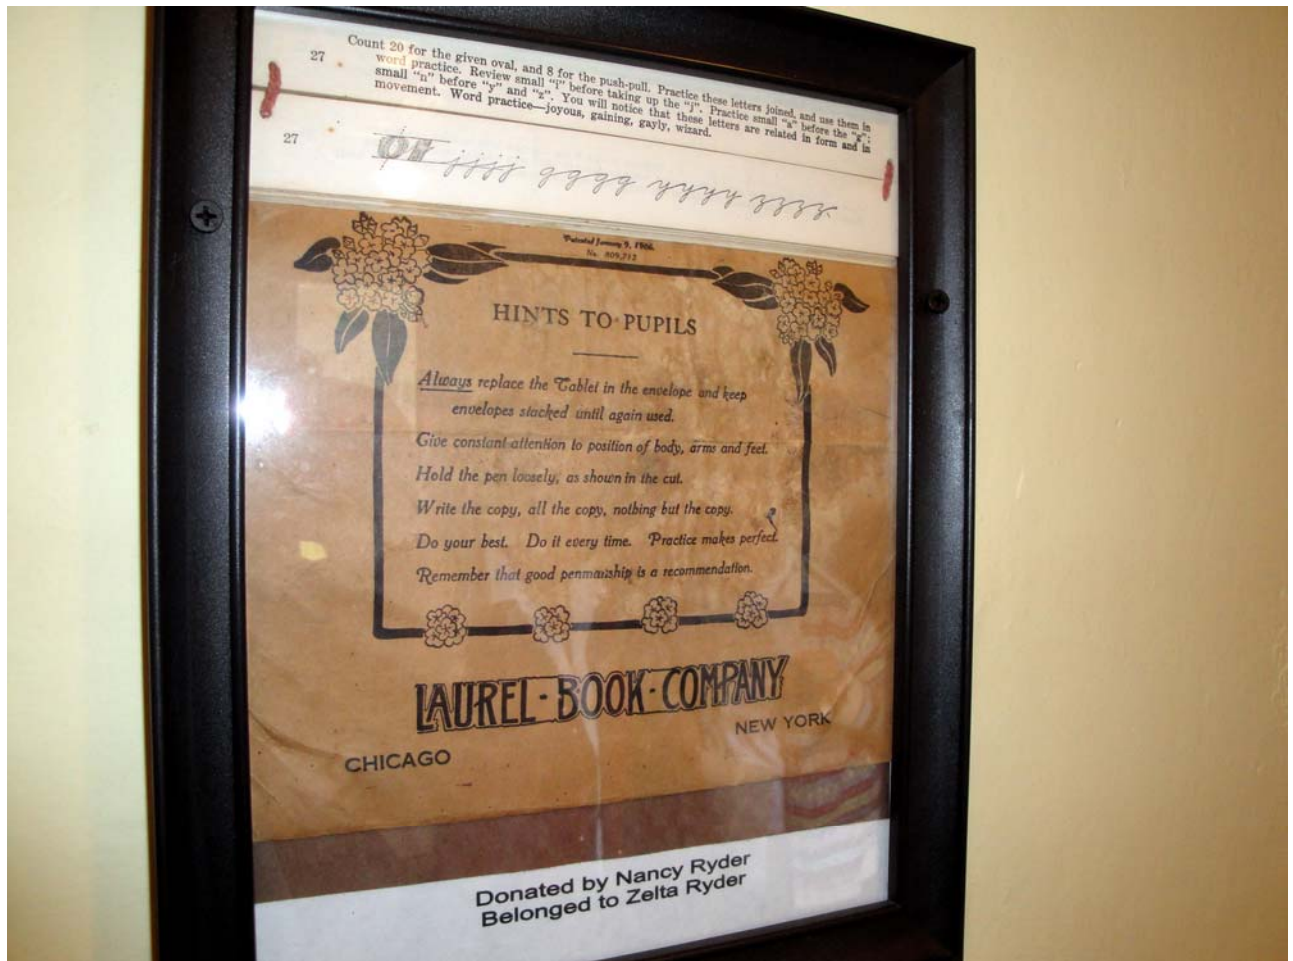 27 Count 20 for the given oval, and 8 for the push-pull. Practice these letters joined, and use them in
word practice. Review small "i" before taking up the "j". Practice small "a" before the "g";
small "n" before "y" and "z". You will notice that these letters are related in form and in
movement. Word practice—joyous, gaining, gayly, wizard.
27 jjjj gggg yyyy zzzz
Patented January 9, 1906.
No. 809,712
HINTS TO PUPILS
Always replace the Tablet in the envelope and keep
envelopes stacked until again used.
Give constant attention to position of body, arms and feet.
Hold the pen loosely, as shown in the cut.
Write the copy, all the copy, nothing but the copy.
Do your best. Do it every time. Practice makes perfect.
Remember that good penmanship is a recommendation.
LAUREL·BOOK·COMPANY
CHICAGO NEW YORK
Donated by Nancy Ryder
Belonged to Zelta Ryder